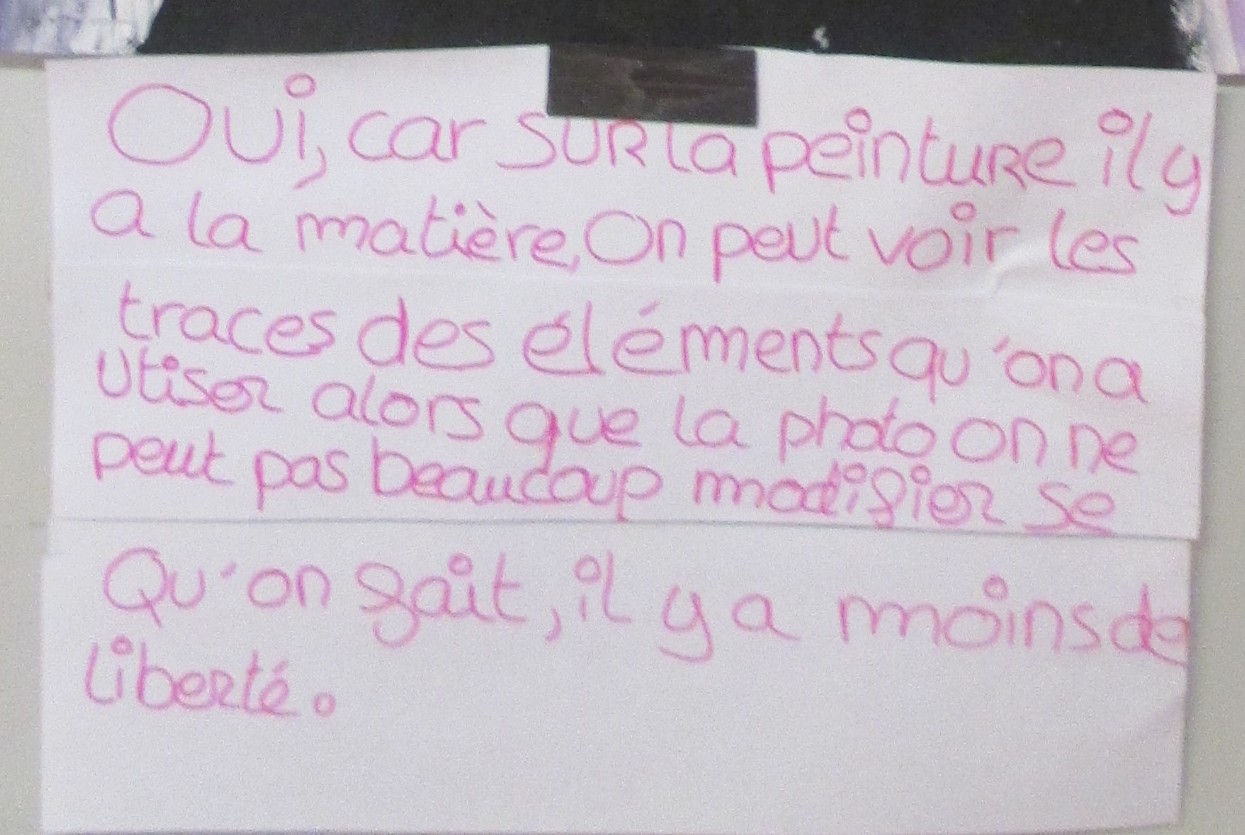 Oui, car sur la peinture il y
a la matière, On peut voir les
traces des éléments qu'on a
utiser alors que la photo on ne
peut pas beaucoup modifier se
Qu'on fait, il y a moins de
liberté.